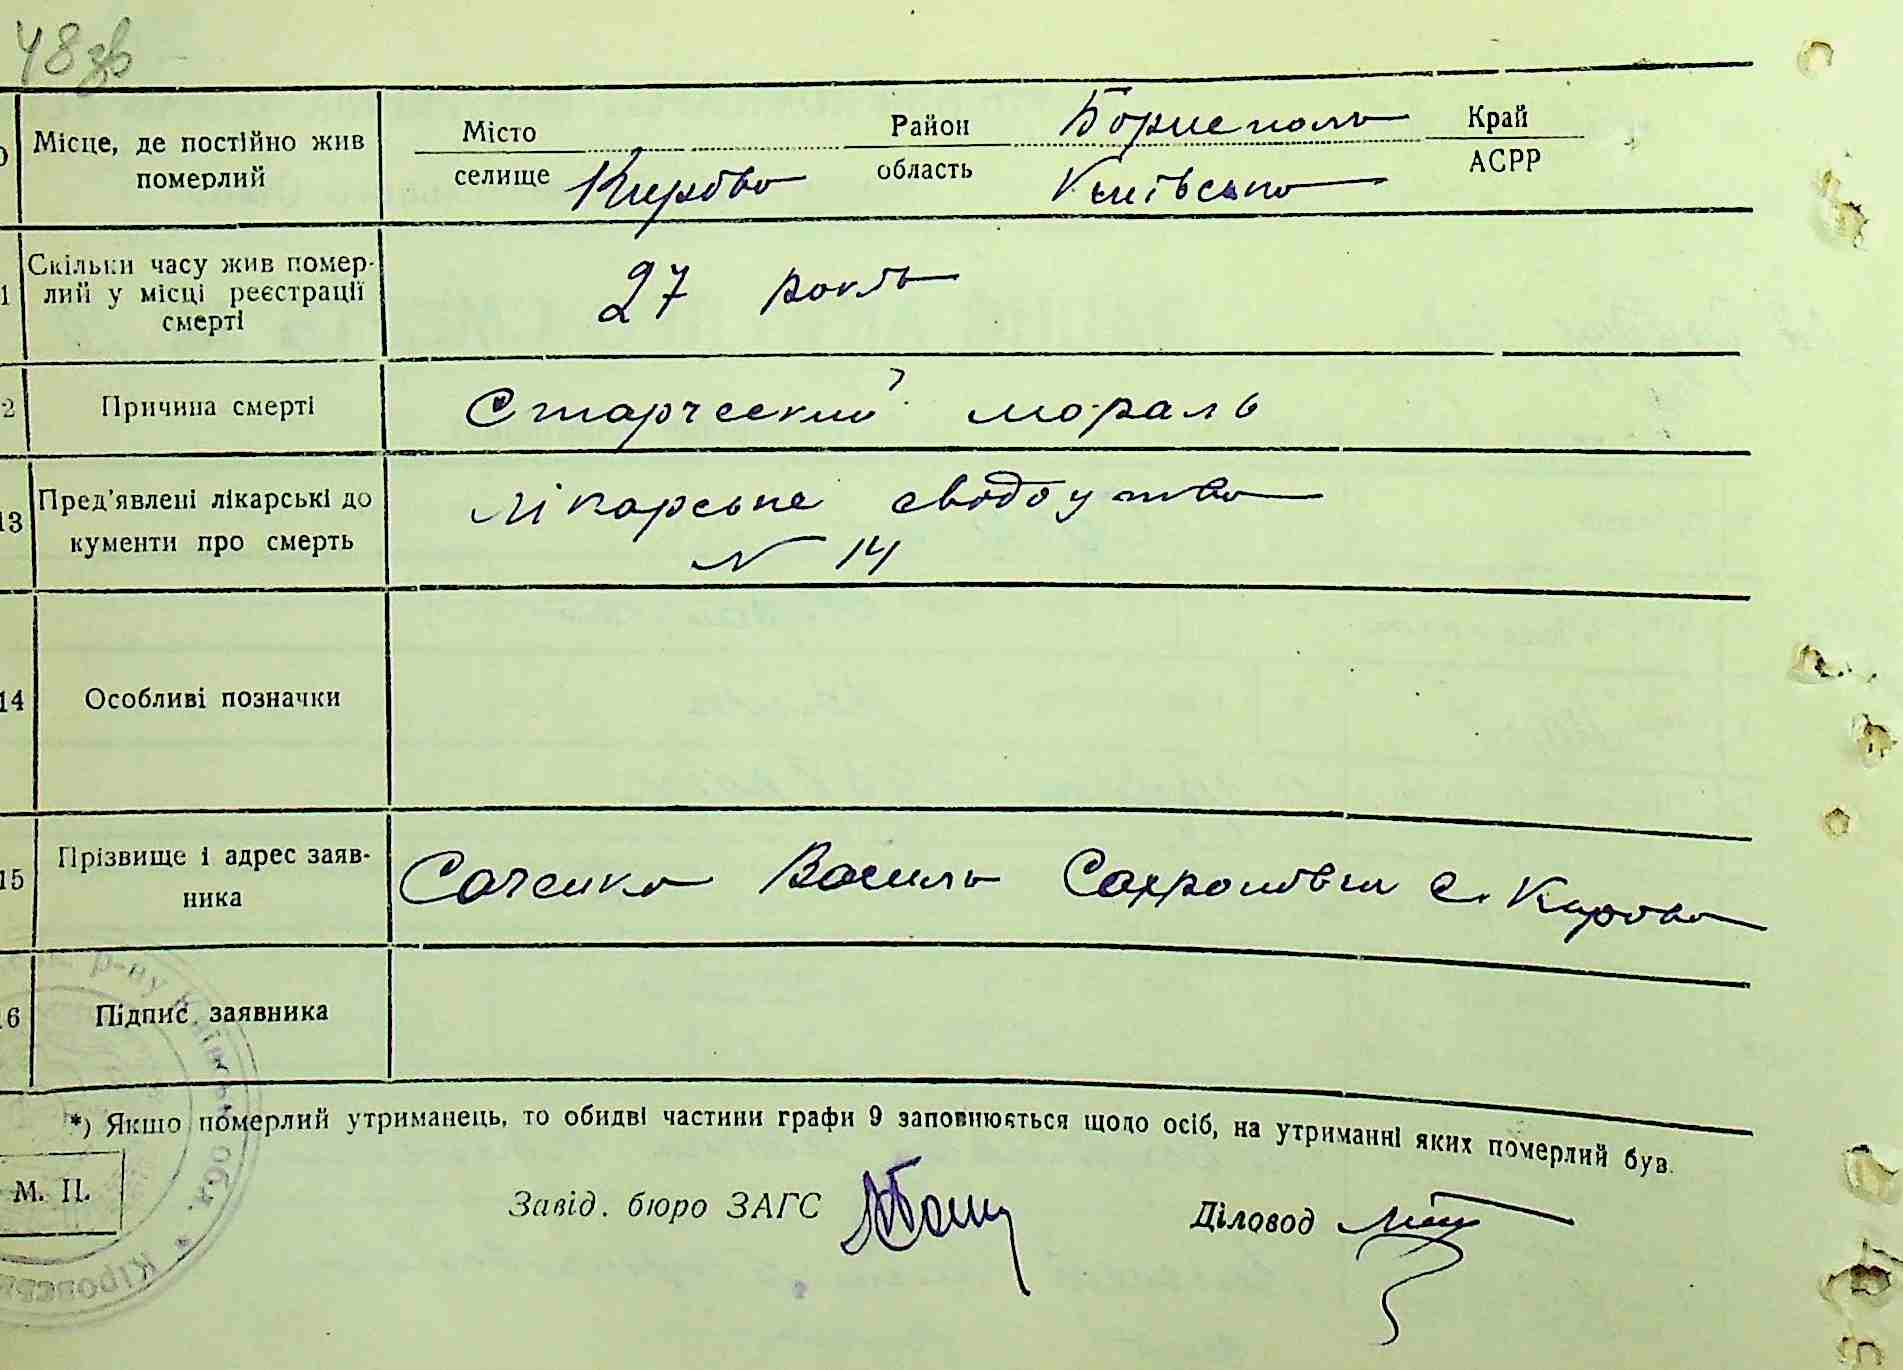 48зв
Місце, де постійно жив померлий
Місто селище Кирово
Район область Бориспопь Київська
Край АСРР
1 Скільки часу жив помер-
лий у місці реєстрації
смерті
27 років
2 Причина смерті
Старческий мораль
13 Пред'явлені лікарські до
кументи про смерть
лікарське свідоцтво
N 14
14 Особливі позначки
15 Прізвище і адрес заяв-
ника
Саченко Василь с. Кирово
6 Підпис заявника
*) Якшо померлий утриманець, то обидві частини графи 9 заповнюється щодо осіб, на утриманні яких померлий був.
М. П.
Завід. бюро ЗАГС
Діловод
р-ну Київськ обл.